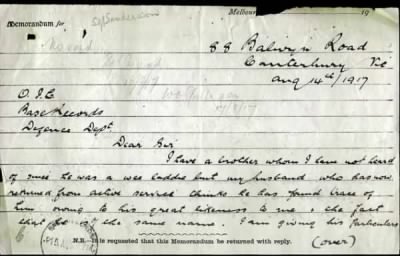 Melbour
Memorandum for
19
88 Balwyn Road
Canterbury Vic
Aug 14th / 1917
O. I. C
Base Records
Defence Dept
Dear Sir
I have a brother whom I have not heard
of since he was a wee laddie but my husband who has now
returned from active service thinks he has found trace of
him owing to his great likeness to me & the fact
that he is of the same name. I am giving his particulars
N.B.—It is requested that this Memorandum be returned with reply.
(over)